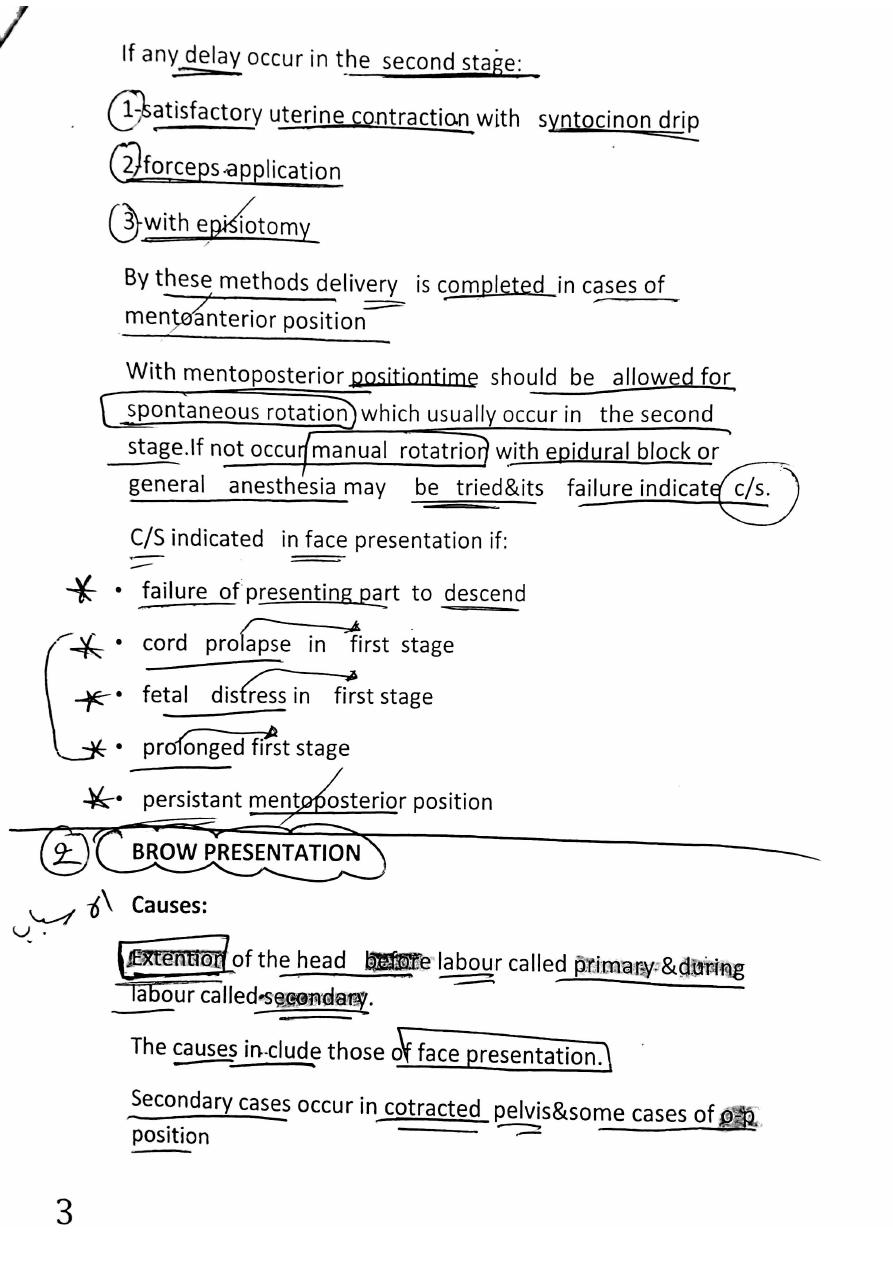 If any delay occur in the second stage:
1-satisfactory uterine contraction with syntocinon drip
2-forceps application
3-with episiotomy
By these methods delivery is completed in cases of
mentoanterior position
With mentoposterior positiontime should be allowed for
spontaneous rotation which usually occur in the second
stage.If not occur manual rotatrion with epidural block or
general anesthesia may be tried&its failure indicate c/s.
C/S indicated in face presentation if:
• failure of presenting part to descend
• cord prolapse in first stage
• fetal distress in first stage
• prolonged first stage
• persistant mentoposterior position
2 BROW PRESENTATION
الاسباب Causes:
Extention of the head before labour called primary &during
labour called secondary.
The causes in clude those of face presentation.
Secondary cases occur in cotracted pelvis&some cases of o-p
position
3